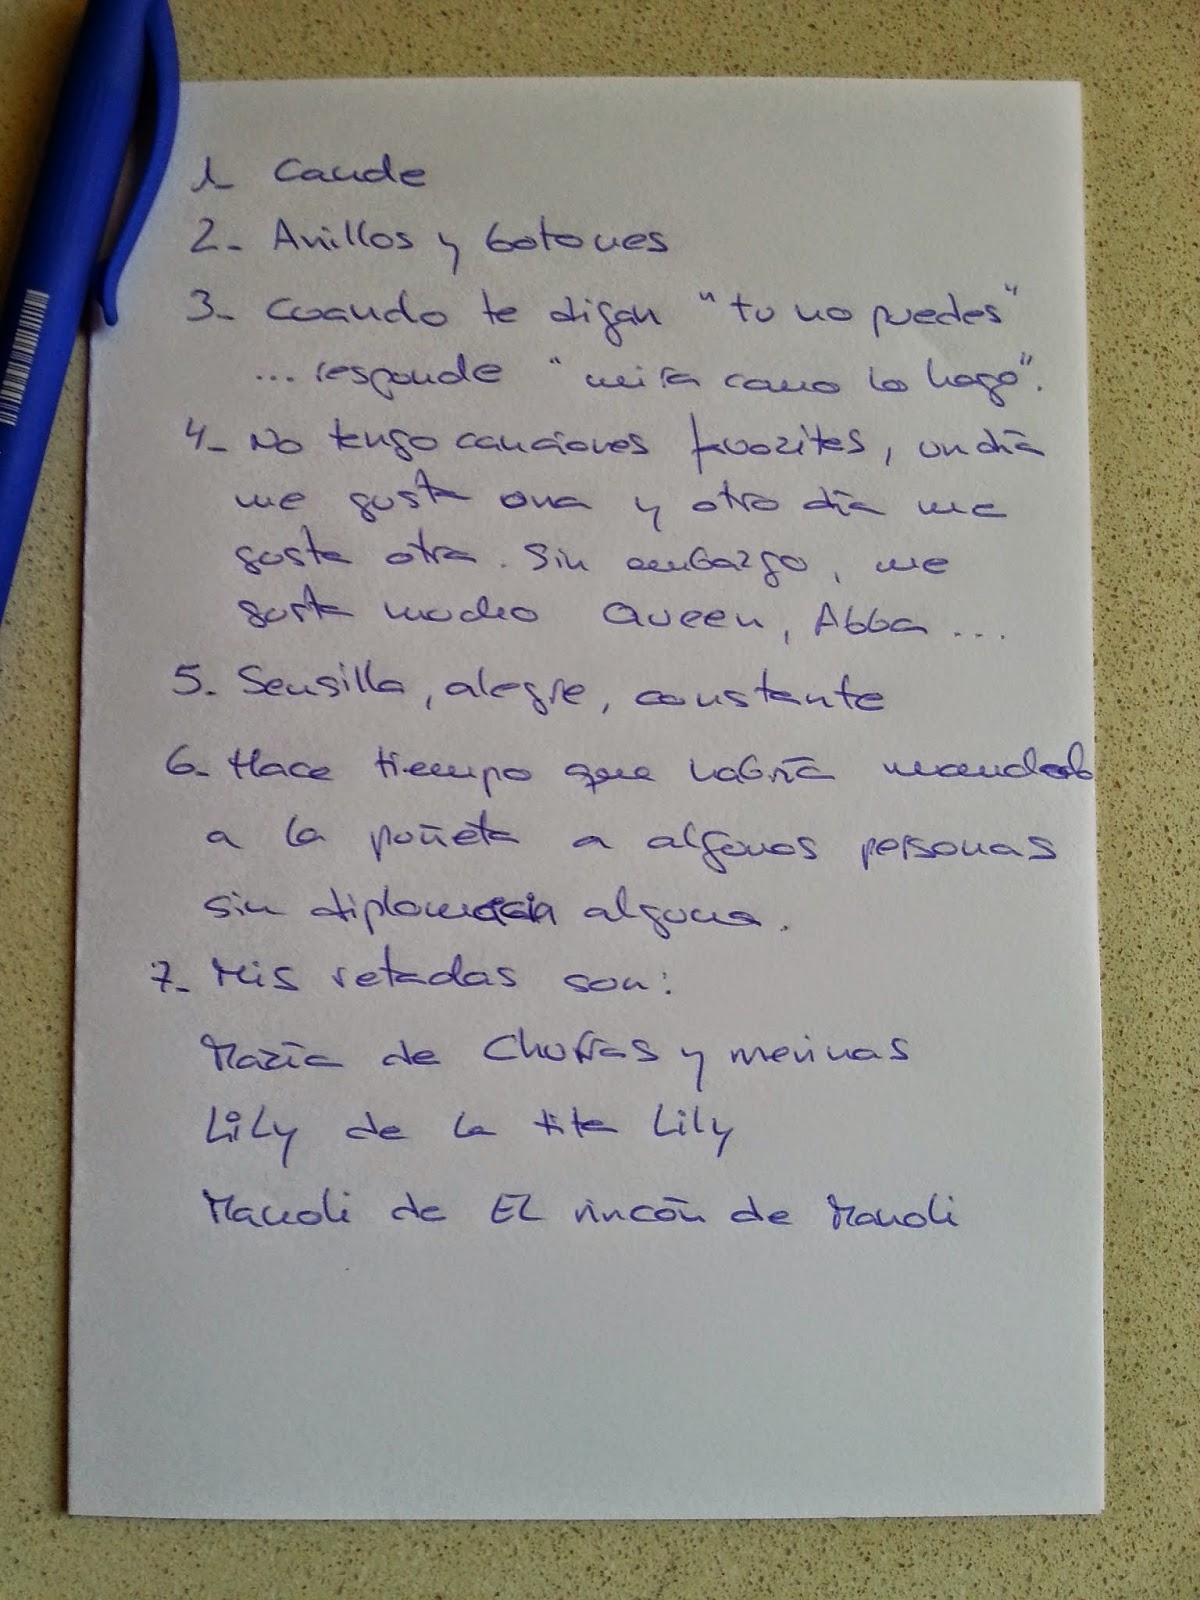 1- Caude
2- Anillos y botones
3- Cuando te digan "tu no puedes"
... responde "mira como lo hago".
4- No tengo canciones favorites, un día
me gusta una y otro día me
gusta otra. Sin embargo, me
gusta mucho Queen, Abba ...
5- Sensilla, alegre, constante
6- Hace tiempo que habría mandado
a la puñeta a algunas personas
sin diplomacia alguna.
7- Mis retadas son:
María de Churras y merinas
Lily de la tita Lily
Manoli de El rincón de Manoli